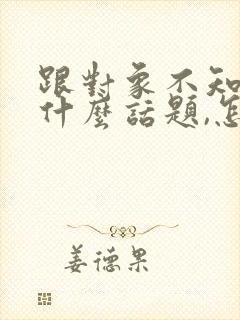 跟對象不知
什麼話題,怎
姜德果